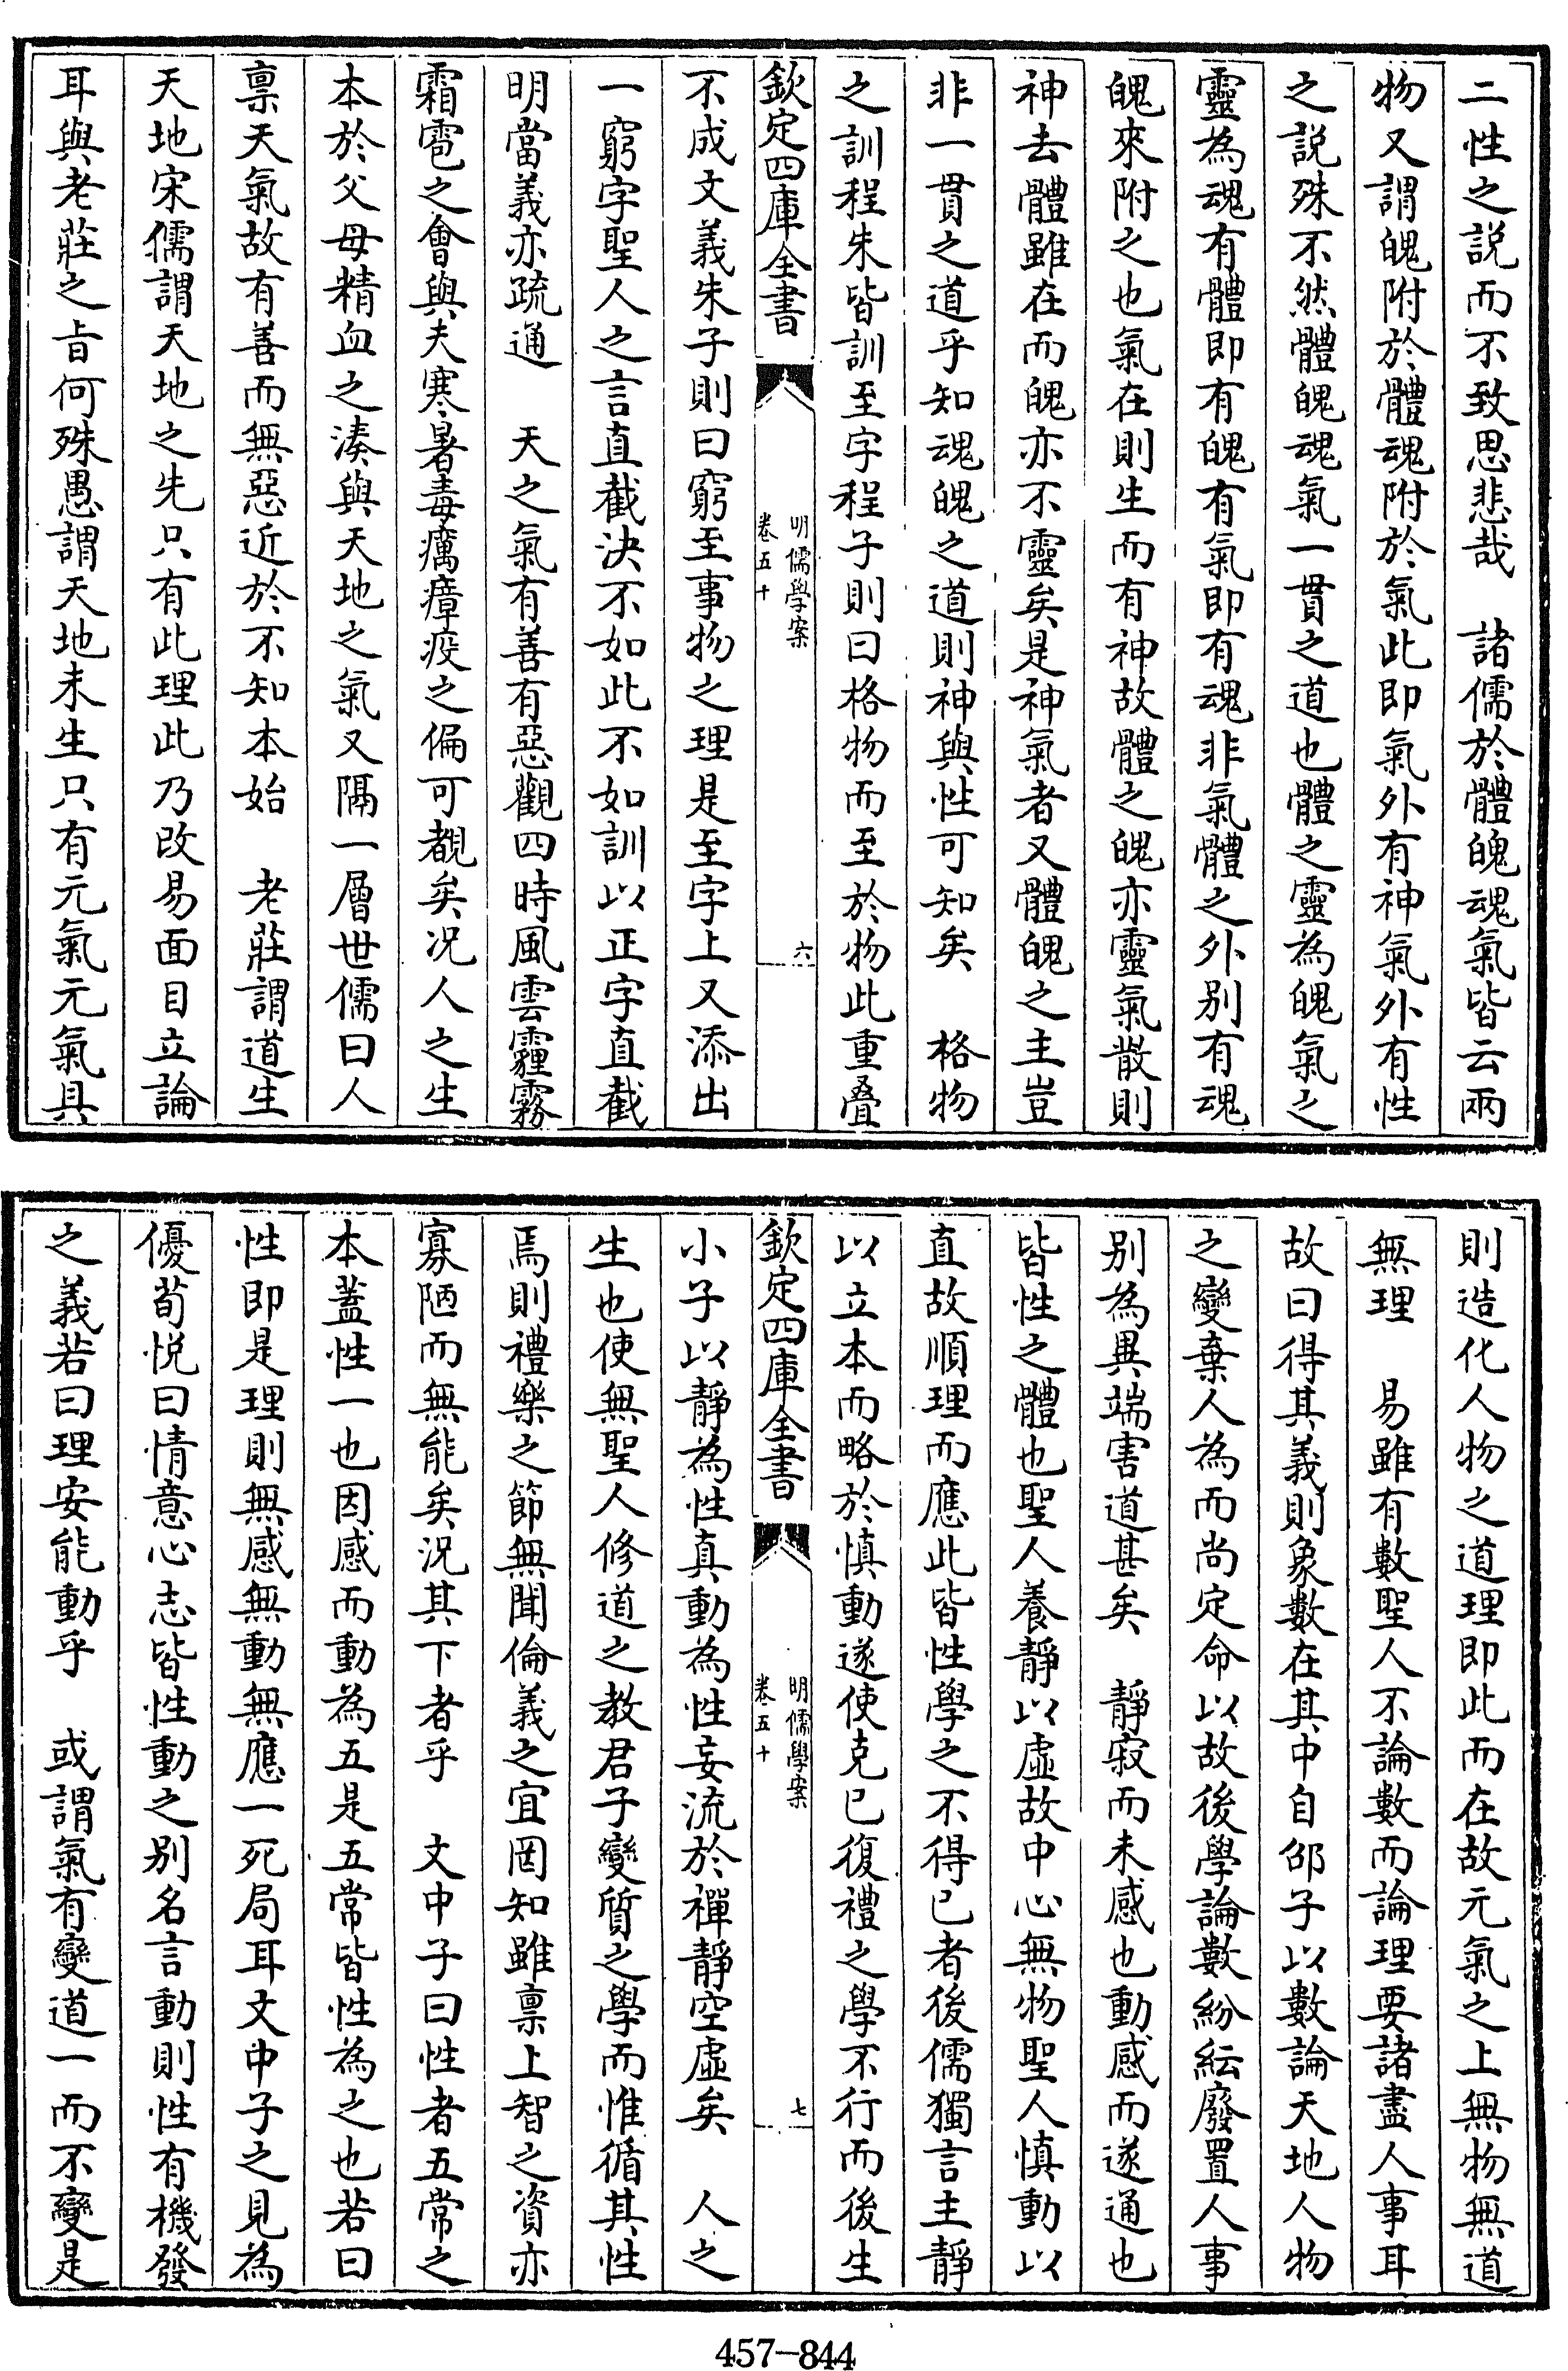 二性之説而不致思悲哉　諸儒於體魄魂氣皆云兩
物又謂魄附於體魂附於氣此即氣外有神氣外有性
之説殊不然體魄魂氣一貫之道也體之靈為魄氣之
靈為魂有體即有魄有氣即有魂非氣體之外別有魂
魄來附之也氣在則生而有神故體之魄亦靈氣散則
神去體雖在而魄亦不靈矣是神氣者又體魄之主豈
非一貫之道乎知魂魄之道則神與性可知矣　格物
之訓程朱皆訓至字程子則曰格物而至於物此重疊
欽定四庫全書
明儒學案
卷五十
六
不成文義朱子則曰窮至事物之理是至字上又添出
一窮字聖人之言直截決不如此不如訓以正字直截
明當義亦疏通　天之氣有善有惡觀四時風雲霾霧
霜雹之會與夫寒暑毒癘瘴疫之偏可覩矣况人之生
本於父母精血之湊與天地之氣又隔一層世儒曰人
禀天氣故有善而無惡近於不知本始　老莊謂道生
天地宋儒謂天地之先只有此理此乃改易面目立論
耳與老莊之旨何殊愚謂天地未生只有元氣元氣具
則造化人物之道理即此而在故元氣之上無物無道
無理　易雖有數聖人不論數而論理要諸盡人事耳
故曰得其義則象數在其中自邵子以數論天地人物
之變棄人為而尚定命以故後學論數紛紜廢置人事
別為異端害道甚矣　靜寂而未感也動感而遂通也
皆性之體也聖人養靜以虛故中心無物聖人慎動以
直故順理而應此皆性學之不得已者後儒獨言主靜
以立本而略於慎動遂使克已復禮之學不行而後生
欽定四庫全書
明儒學案
卷五十
七
小子以靜為性真動為性妄流於禪靜空虛矣　人之
生也使無聖人修道之教君子變質之學而惟循其性
焉則禮樂之節無聞倫義之宜罔知雖禀上智之資亦
寡陋而無能矣況其下者乎　文中子曰性者五常之
本蓋性一也因感而動為五是五常皆性為之也若曰
性即是理則無感無動無應一死局耳文中子之見為
優荀悦曰情意心志皆性動之别名言動則性有機發
之義若曰理安能動乎　或謂氣有變道一而不變是
457-844